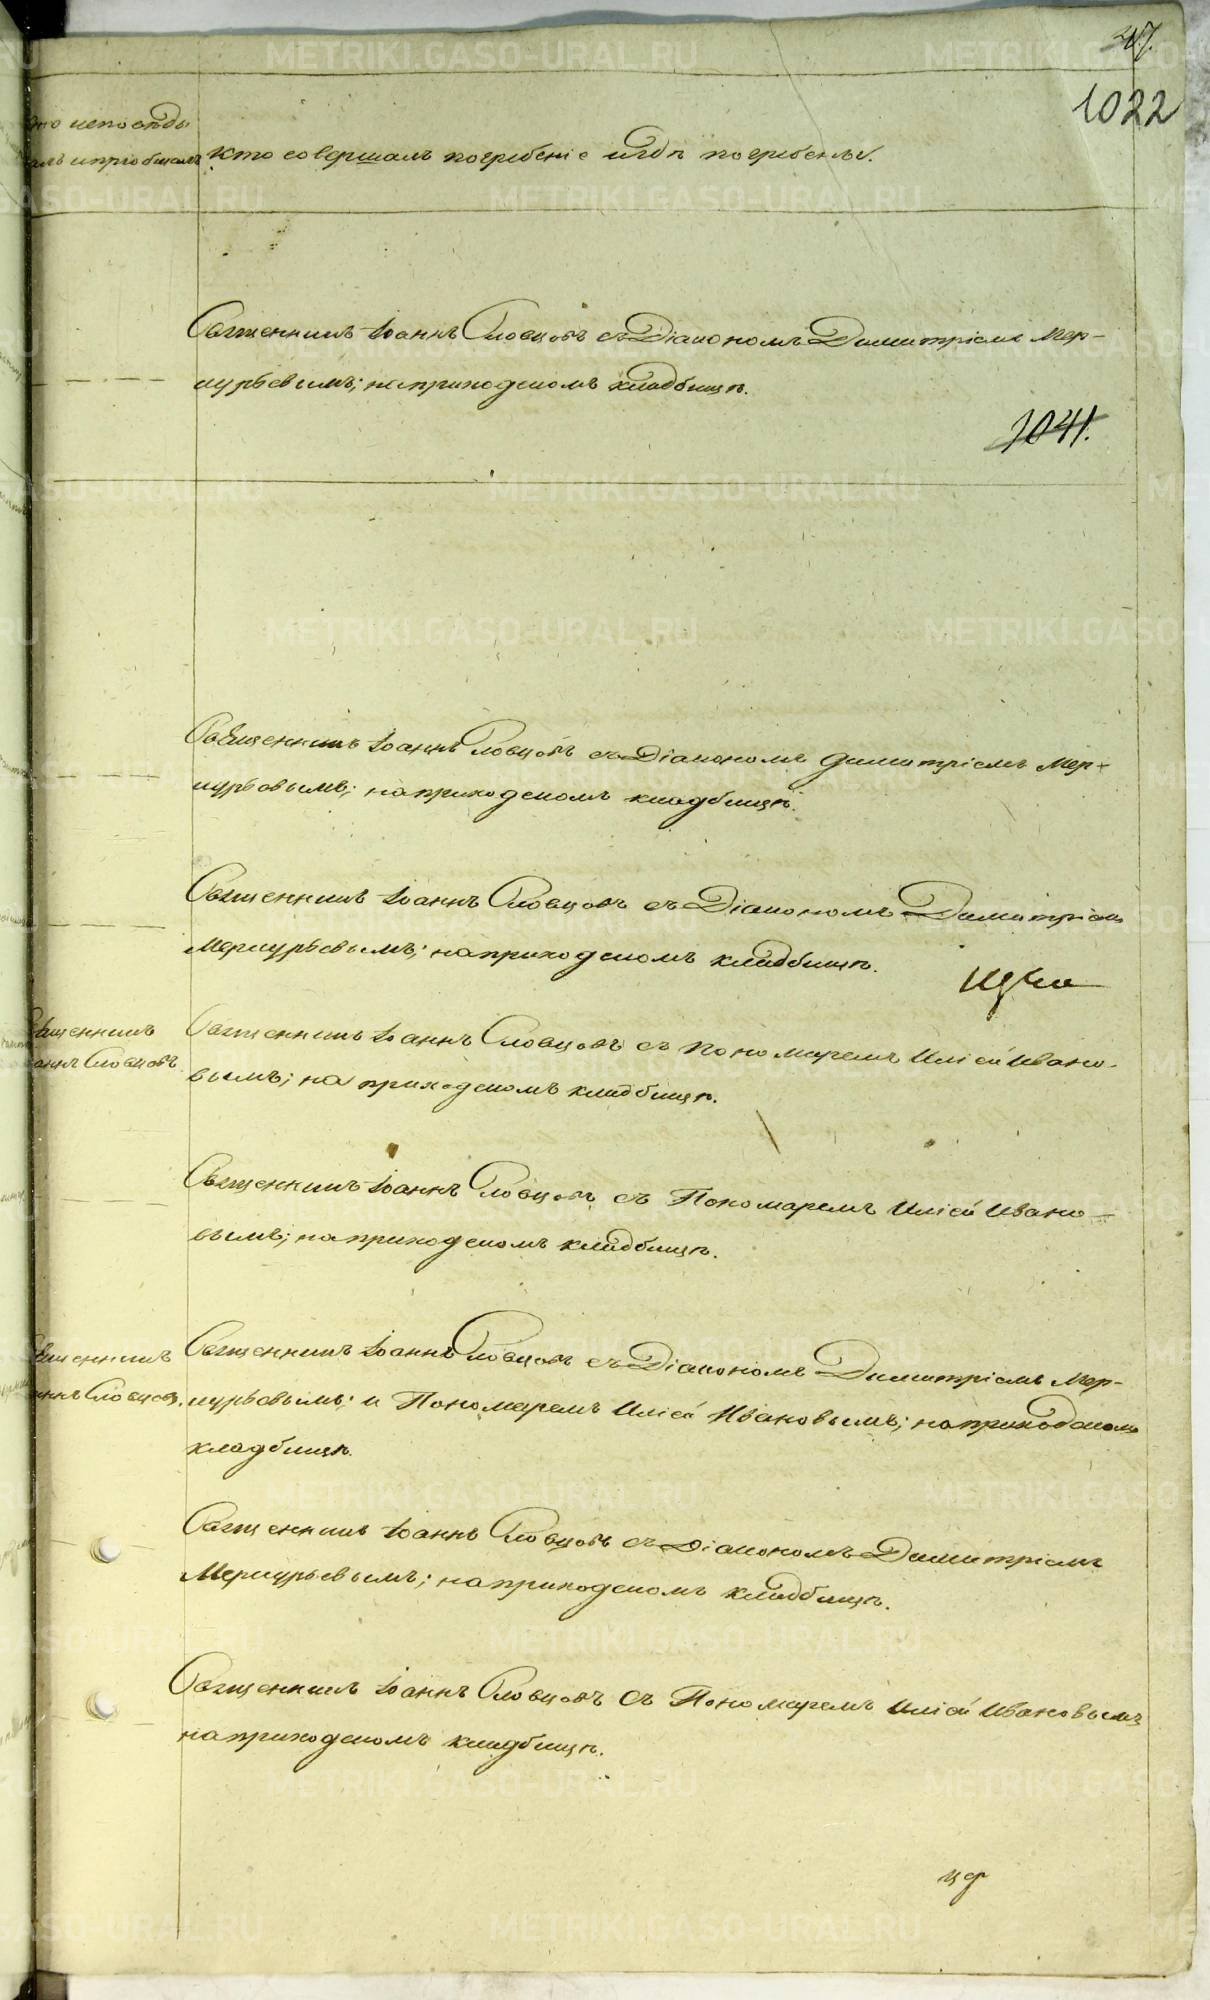 47.
1022
Кто исповѣды
алъ и пріобщалъ
Кто совершалъ погребеніе и гдѣ погребены.
Священникъ Іоаннъ Словцовъ съ Діакономъ Димитріемъ Мер-
курьевымъ; на приходскомъ кладбищѣ.
1041.
Священникъ Іоаннъ Словцовъ съ Діакономъ Димитріемъ Мер-
курьевымъ; на приходскомъ кладбищѣ.
Священникъ Іоаннъ Словцовъ съ Діакономъ Димитріемъ
Меркурьевымъ; на приходскомъ кладбищѣ.
Священникъ
аннъ Словцовъ
Священникъ Іоаннъ Словцовъ съ пономаремъ Иліей Ивано-
вымъ; на приходскомъ кладбищѣ.
Священникъ Іоаннъ Словцовъ съ Пономаремъ Иліей Ивано-
вымъ; на приходскомъ кладбищѣ.
Священникъ
аннъ Словцовъ.
Священникъ Іоаннъ Словцовъ съ Діакономъ Димитріемъ Мер-
курьевымъ; и Пономаремъ Иліей Ивановымъ; на приходскомъ
кладбищѣ.
Священникъ Іоаннъ Словцовъ съ Діакономъ Димитріемъ
Меркурьевымъ; на приходскомъ кладбищѣ.
Священникъ Іоаннъ Словцовъ съ Пономаремъ Иліей Ивановымъ
на приходскомъ кладбищѣ.
METRIKI.GASO-URAL.RU